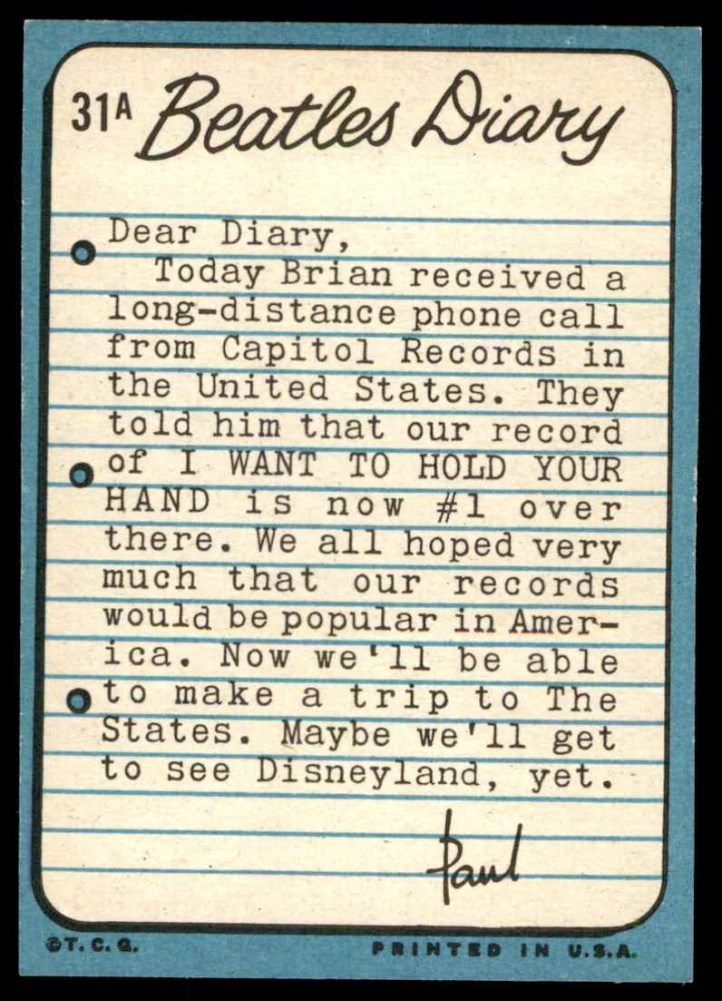 31A Beatles Diary
Dear Diary,
Today Brian received a
long-distance phone call
from Capitol Records in
the United States. They
told him that our record
of I WANT TO HOLD YOUR
HAND is now #1 over
there. We all hoped very
much that our records
would be popular in Amer-
ica. Now we'll be able
to make a trip to The
States. Maybe we'll get
to see Disneyland, yet.
Paul
©T.C.G. PRINTED IN U.S.A.